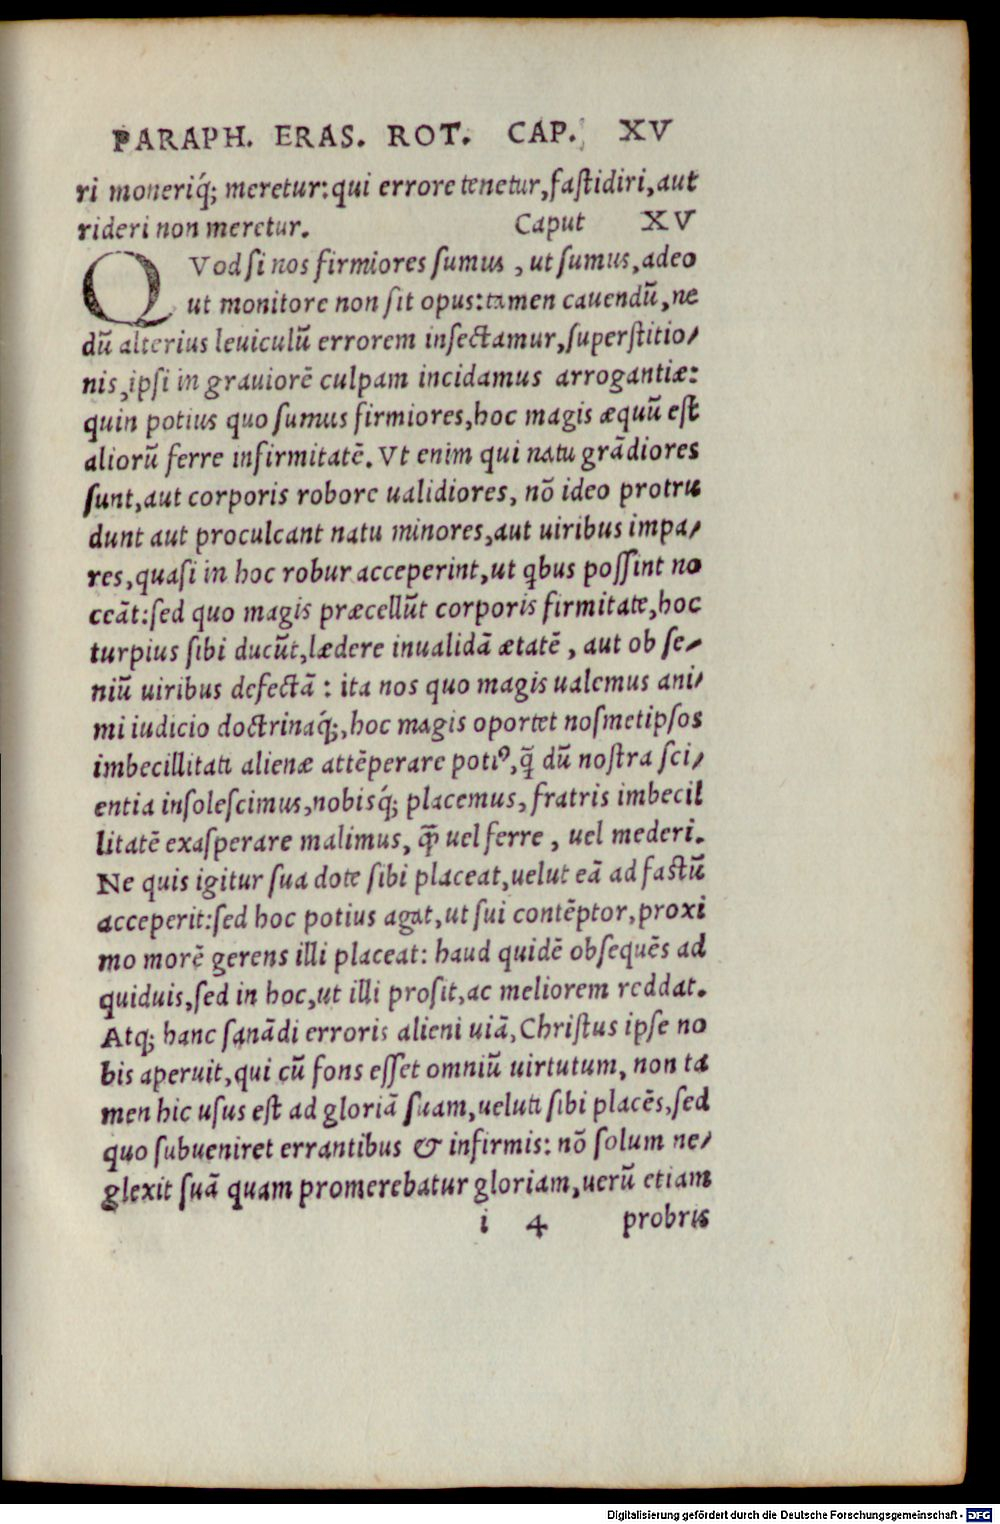 PARAPH. ERAS. ROT. CAP. XV
ri moneriq́; meretur: qui errore tenetur, fastidiri, aut
rideri non meretur. Caput XV
QVod si nos firmiores sumus, ut sumus, adeo
ut monitore non sit opus: tamen cauendū, ne
dū alterius leuiculū errorem insectamur, superstitio/
nis, ipsi in grauiorē culpam incidamus arrogantiæ:
quin potius quo sumus firmiores, hoc magis æquū est
aliorū ferre infirmitatē. Vt enim qui natu grādiores
sunt, aut corporis robore ualidiores, nō ideo protru
dunt aut proculcant natu minores, aut uiribus impa/
res, quasi in hoc robur acceperint, ut qbus possint no
ceāt: sed quo magis præcellūt corporis firmitate, hoc
turpius sibi ducūt, lædere inualidā ætatē, aut ob se/
niū uiribus defectā: ita nos quo magis ualemus ani/
mi iudicio doctrinaq́;, hoc magis oportet nosmetipsos
imbecillitati alienæ attēperare potiꝰ, q̄ dū nostra sci/
entia insolescimus, nobisq́; placemus, fratris imbecil
litatē exasperare malimus, q̄ uel ferre, uel mederi.
Ne quis igitur sua dote sibi placeat, uelut eā ad fastū
acceperit: sed hoc potius agat, ut sui contēptor, proxi
mo morē gerens illi placeat: haud quidē obsequēs ad
quiduis, sed in hoc, ut illi prosit, ac meliorem reddat.
Atq; hanc sanādi erroris alieni uiā, Christus ipse no
bis aperuit, qui cū fons esset omniū uirtutum, non ta
men hic usus est ad gloriā suam, ueluti sibi placēs, sed
quo subueniret errantibus & infirmis: nō solum ne/
glexit suā quam promerebatur gloriam, uerū etiam
i 4 probris
Digitalisierung gefördert durch die Deutsche Forschungsgemeinschaft - DFG